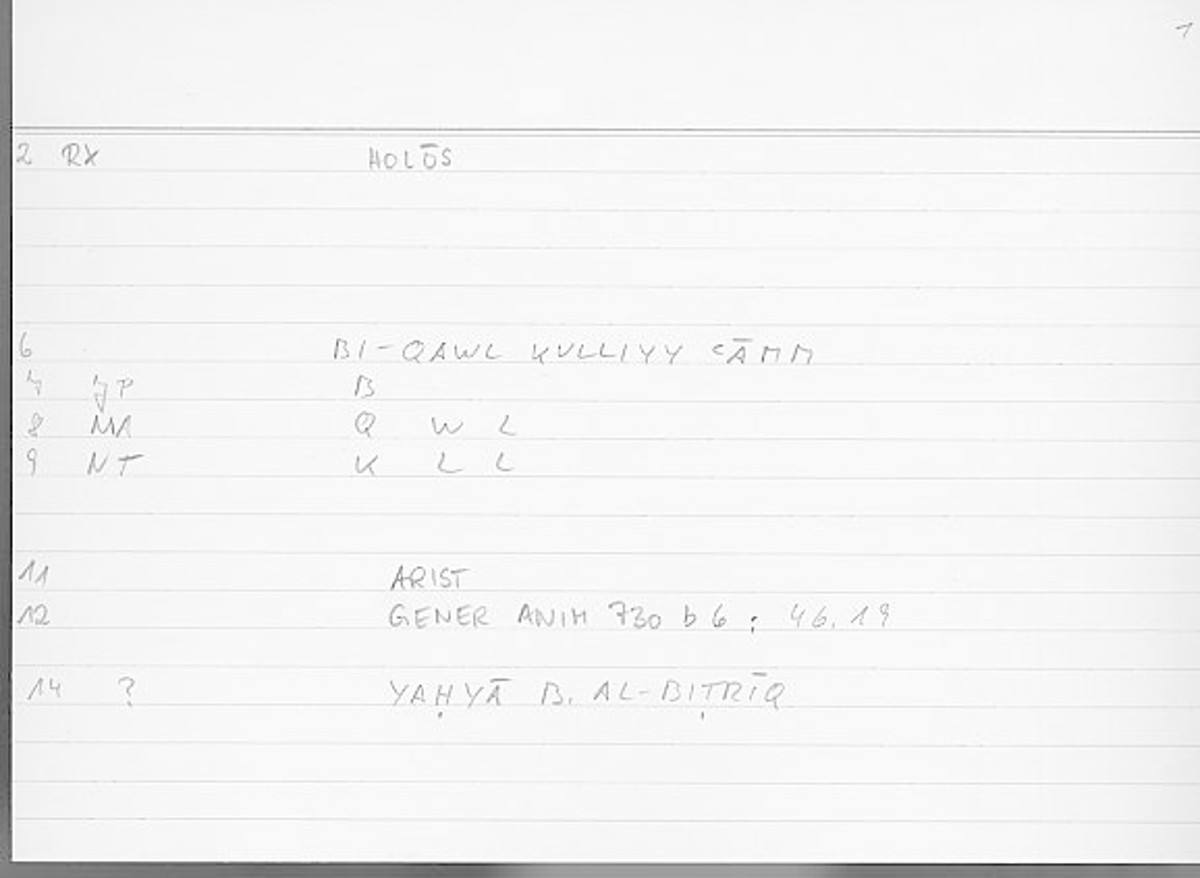 1
2 RX HOLŌS
6 BI-QAWL KULLIYY ᶜĀMM
7 JP B
8 MA Q W L
9 NT K L L
11 ARIST
12 GENER ANIM 730 b 6 ; 46.19
14 ? YAḤYĀ B. AL-BIṬRĪQ